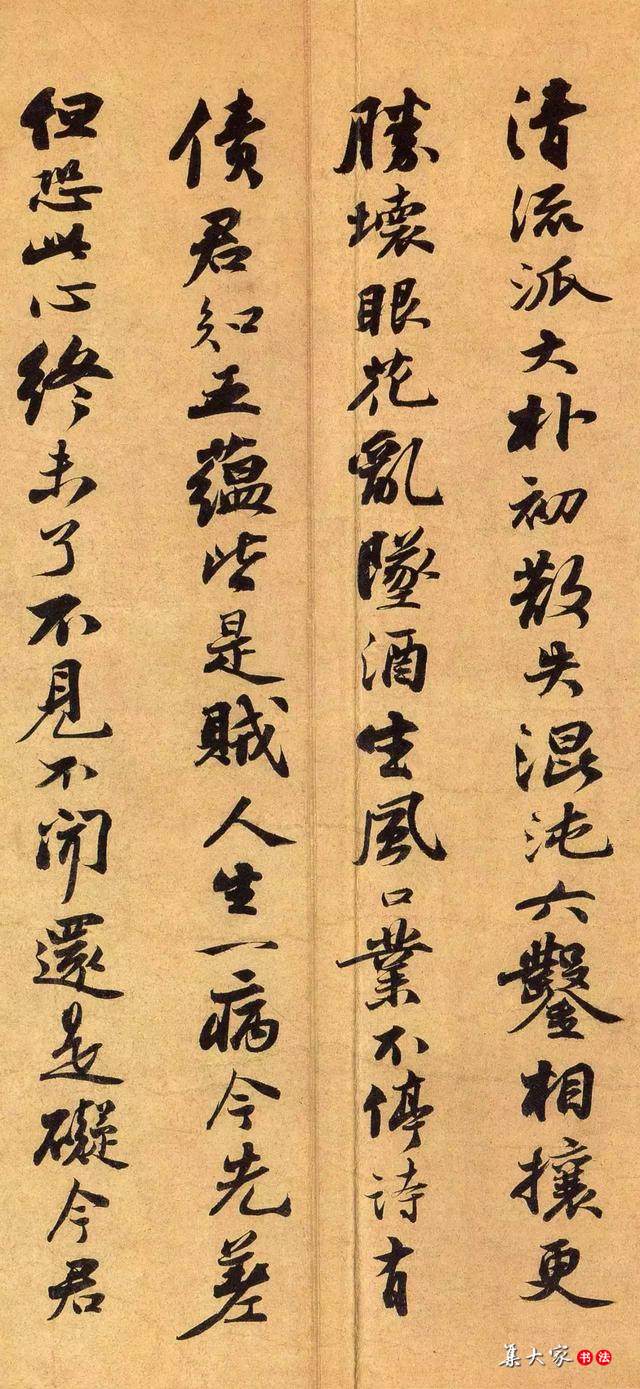 清流派大朴初散失混沌六鑿相攘更
勝壞眼花亂墜酒生風口業不停诗有
債君知五蘊皆是賊人生一病今先差
但恐此心終未了不見不聞還是礙今君
集大家书法